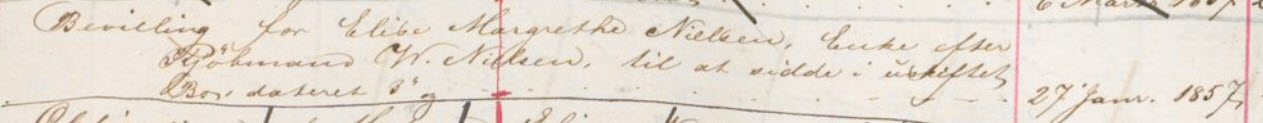 6 Marts 1857
Bevilling for Elise Margrethe Nielsen, Enke efter
Kjöbmand W. Nielsen, til at sidde i uskiftet
Bo, dateret 3' og
27 Janr. 1857,